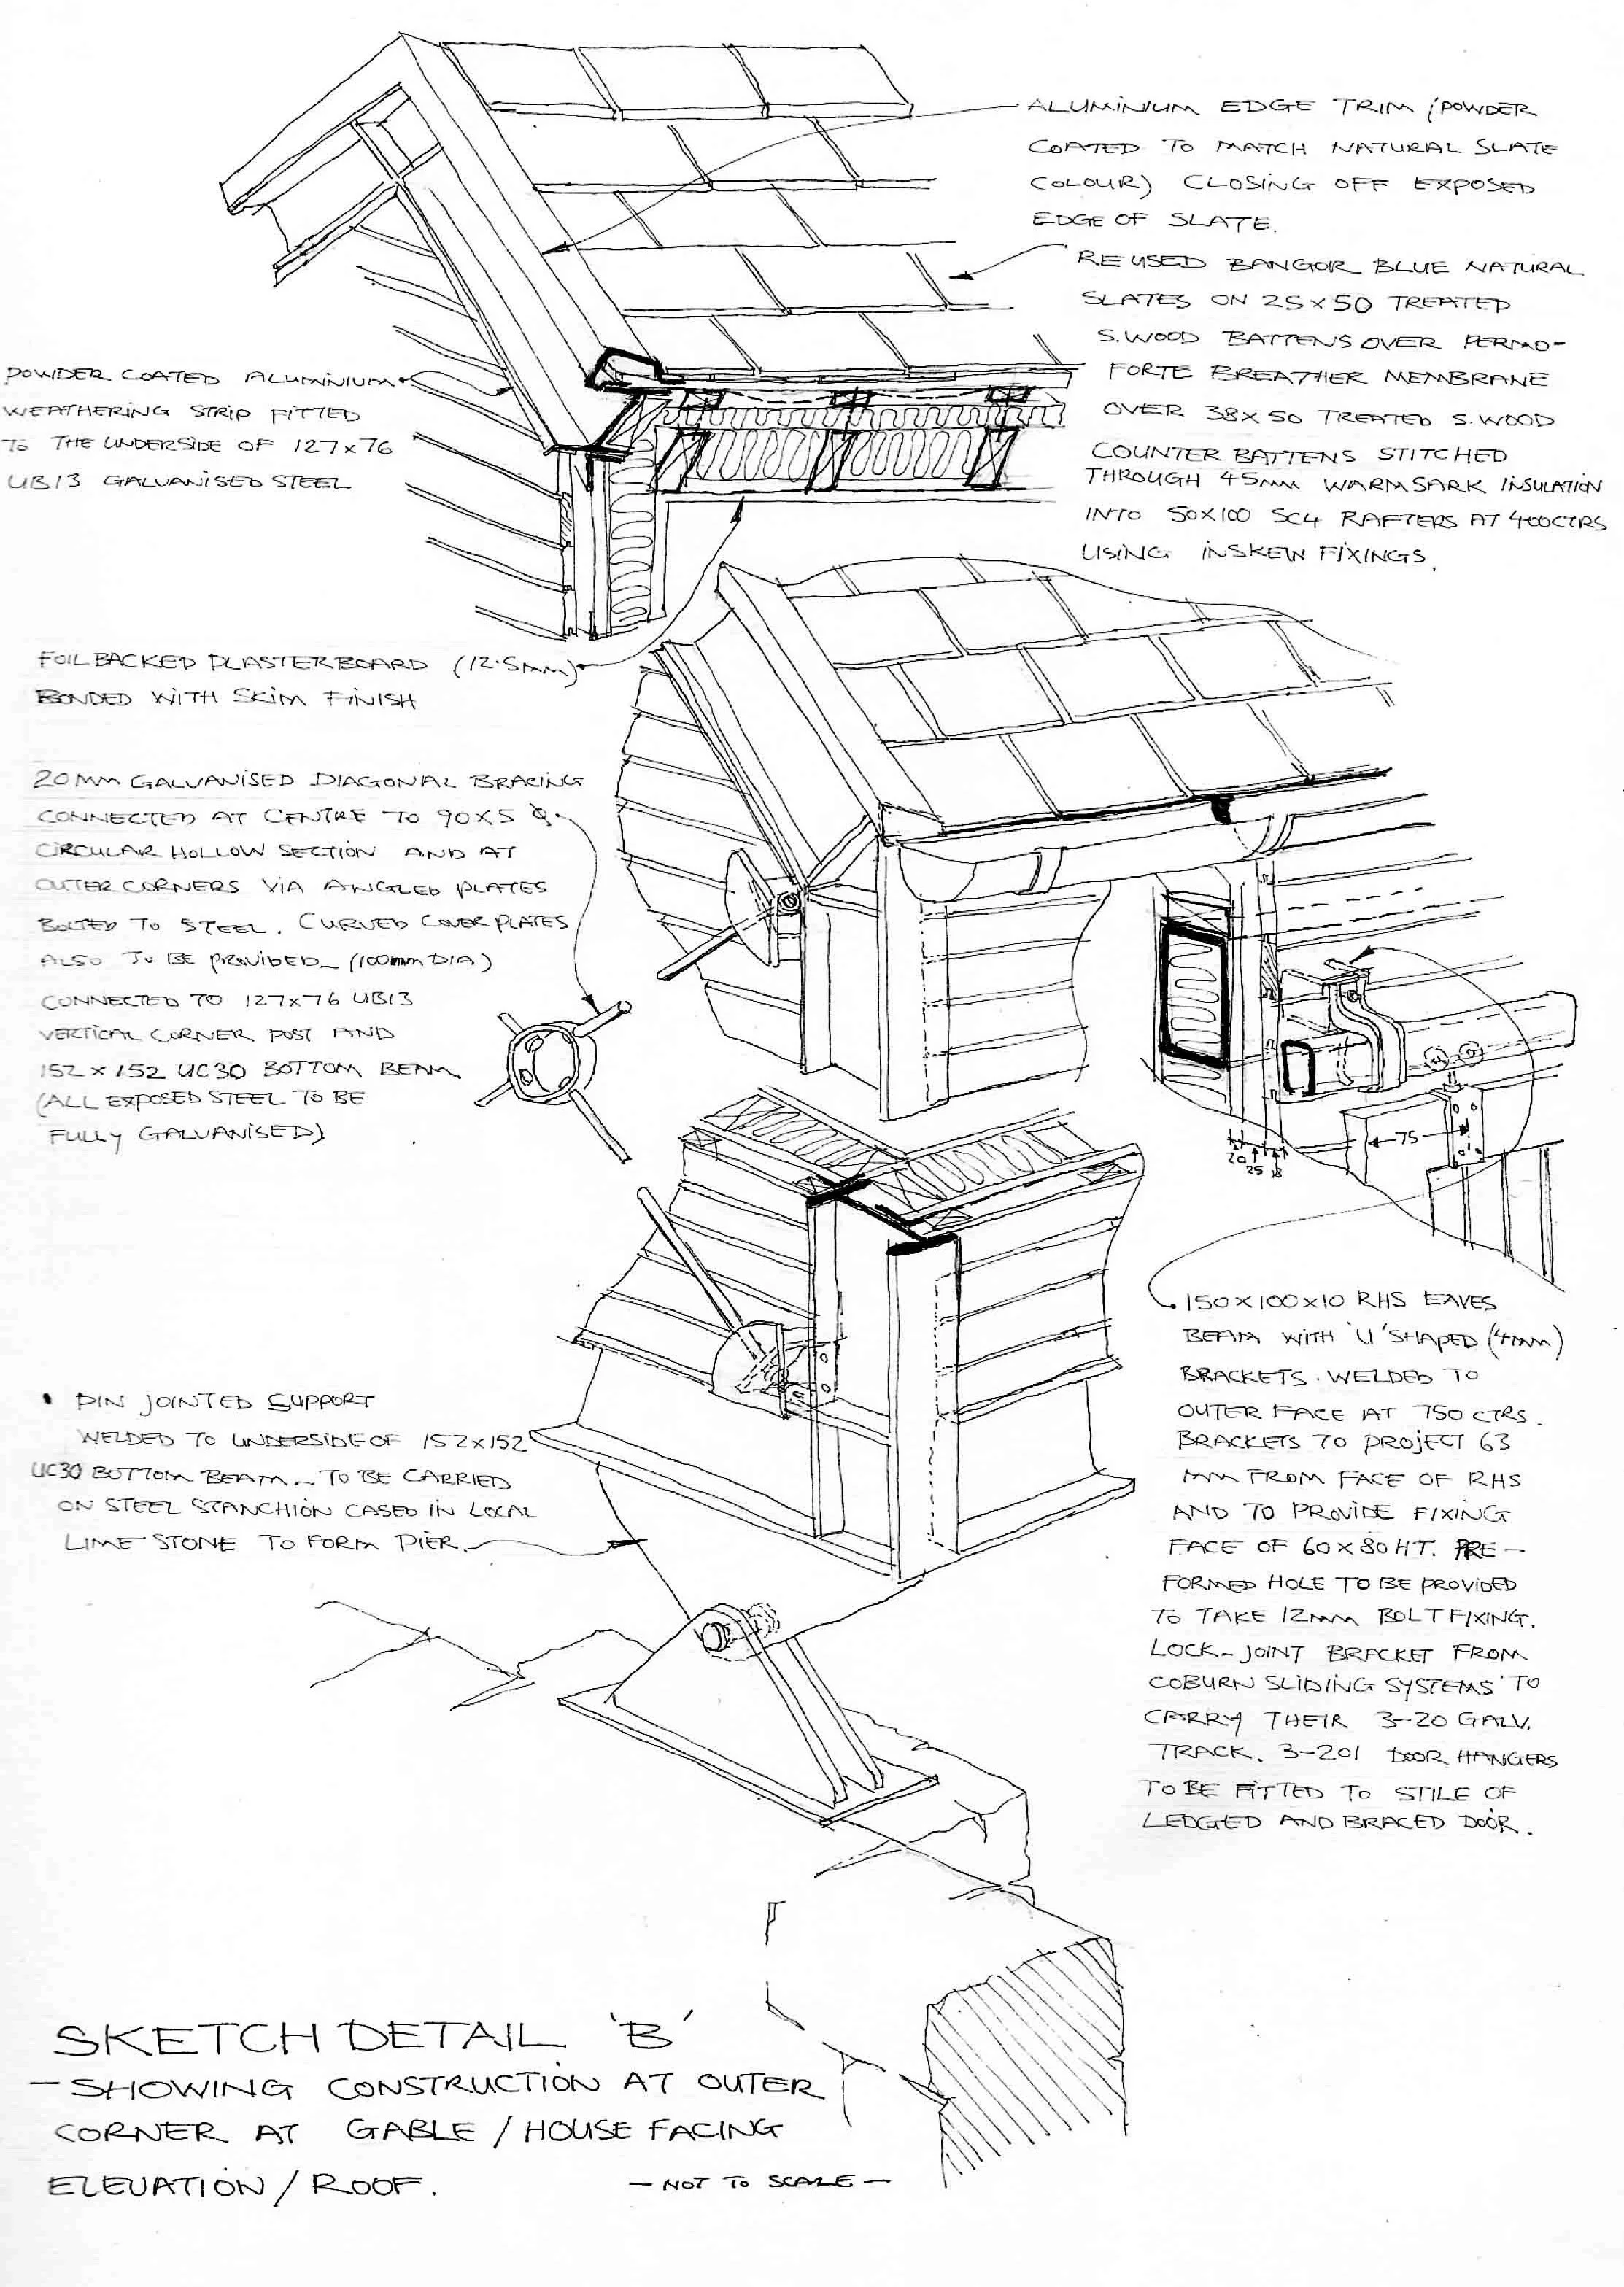 ALUMINIUM EDGE TRIM (POWDER
COATED TO MATCH NATURAL SLATE
COLOUR) CLOSING OFF EXPOSED
EDGE OF SLATE.
REUSED BANGOR BLUE NATURAL
SLATES ON 25x50 TREATED
S.WOOD BATTENS OVER PERMO-
FORTE BREATHER MEMBRANE
OVER 38x50 TREATED S.WOOD
COUNTER BATTENS STITCHED
THROUGH 45mm WARMSARK INSULATION
INTO 50x100 SC4 RAFTERS AT 400CTRS
USING INSKEW FIXINGS.
POWDER COATED ALUMINIUM
WEATHERING STRIP FITTED
TO THE UNDERSIDE OF 127x76
UB13 GALVANISED STEEL
FOIL BACKED PLASTERBOARD (12.5mm)
BONDED WITH SKIM FINISH
20mm GALVANISED DIAGONAL BRACING
CONNECTED AT CENTRE TO 90x5 Ø
CIRCULAR HOLLOW SECTION AND AT
OUTER CORNERS VIA ANGLED PLATES
BOLTED TO STEEL. CURVED COVER PLATES
ALSO TO BE PROVIDED - (100mm DIA)
CONNECTED TO 127x76 UB13
VERTICAL CORNER POST AND
152 x 152 UC30 BOTTOM BEAM
(ALL EXPOSED STEEL TO BE
FULLY GALVANISED)
75
20
25
18
150x100x10 RHS EAVES
BEAM WITH 'U' SHAPED (4mm)
BRACKETS. WELDED TO
OUTER FACE AT 750 CTRS.
BRACKETS TO PROJECT 63
mm FROM FACE OF RHS
AND TO PROVIDE FIXING
FACE OF 60x80 HT. PRE-
FORMED HOLE TO BE PROVIDED
TO TAKE 12mm BOLT FIXING.
LOCK-JOINT BRACKET FROM
COBURN SLIDING SYSTEMS TO
CARRY THEIR 3-20 GALV.
TRACK. 3-201 DOOR HANGERS
TO BE FITTED TO STILE OF
LEDGED AND BRACED DOOR.
• PIN JOINTED SUPPORT
WELDED TO UNDERSIDE OF 152x152
UC30 BOTTOM BEAM - TO BE CARRIED
ON STEEL STANCHION CASED IN LOCAL
LIMESTONE TO FORM PIER.
SKETCH DETAIL 'B'
- SHOWING CONSTRUCTION AT OUTER
CORNER AT GABLE / HOUSE FACING
ELEVATION / ROOF.
- NOT TO SCALE -